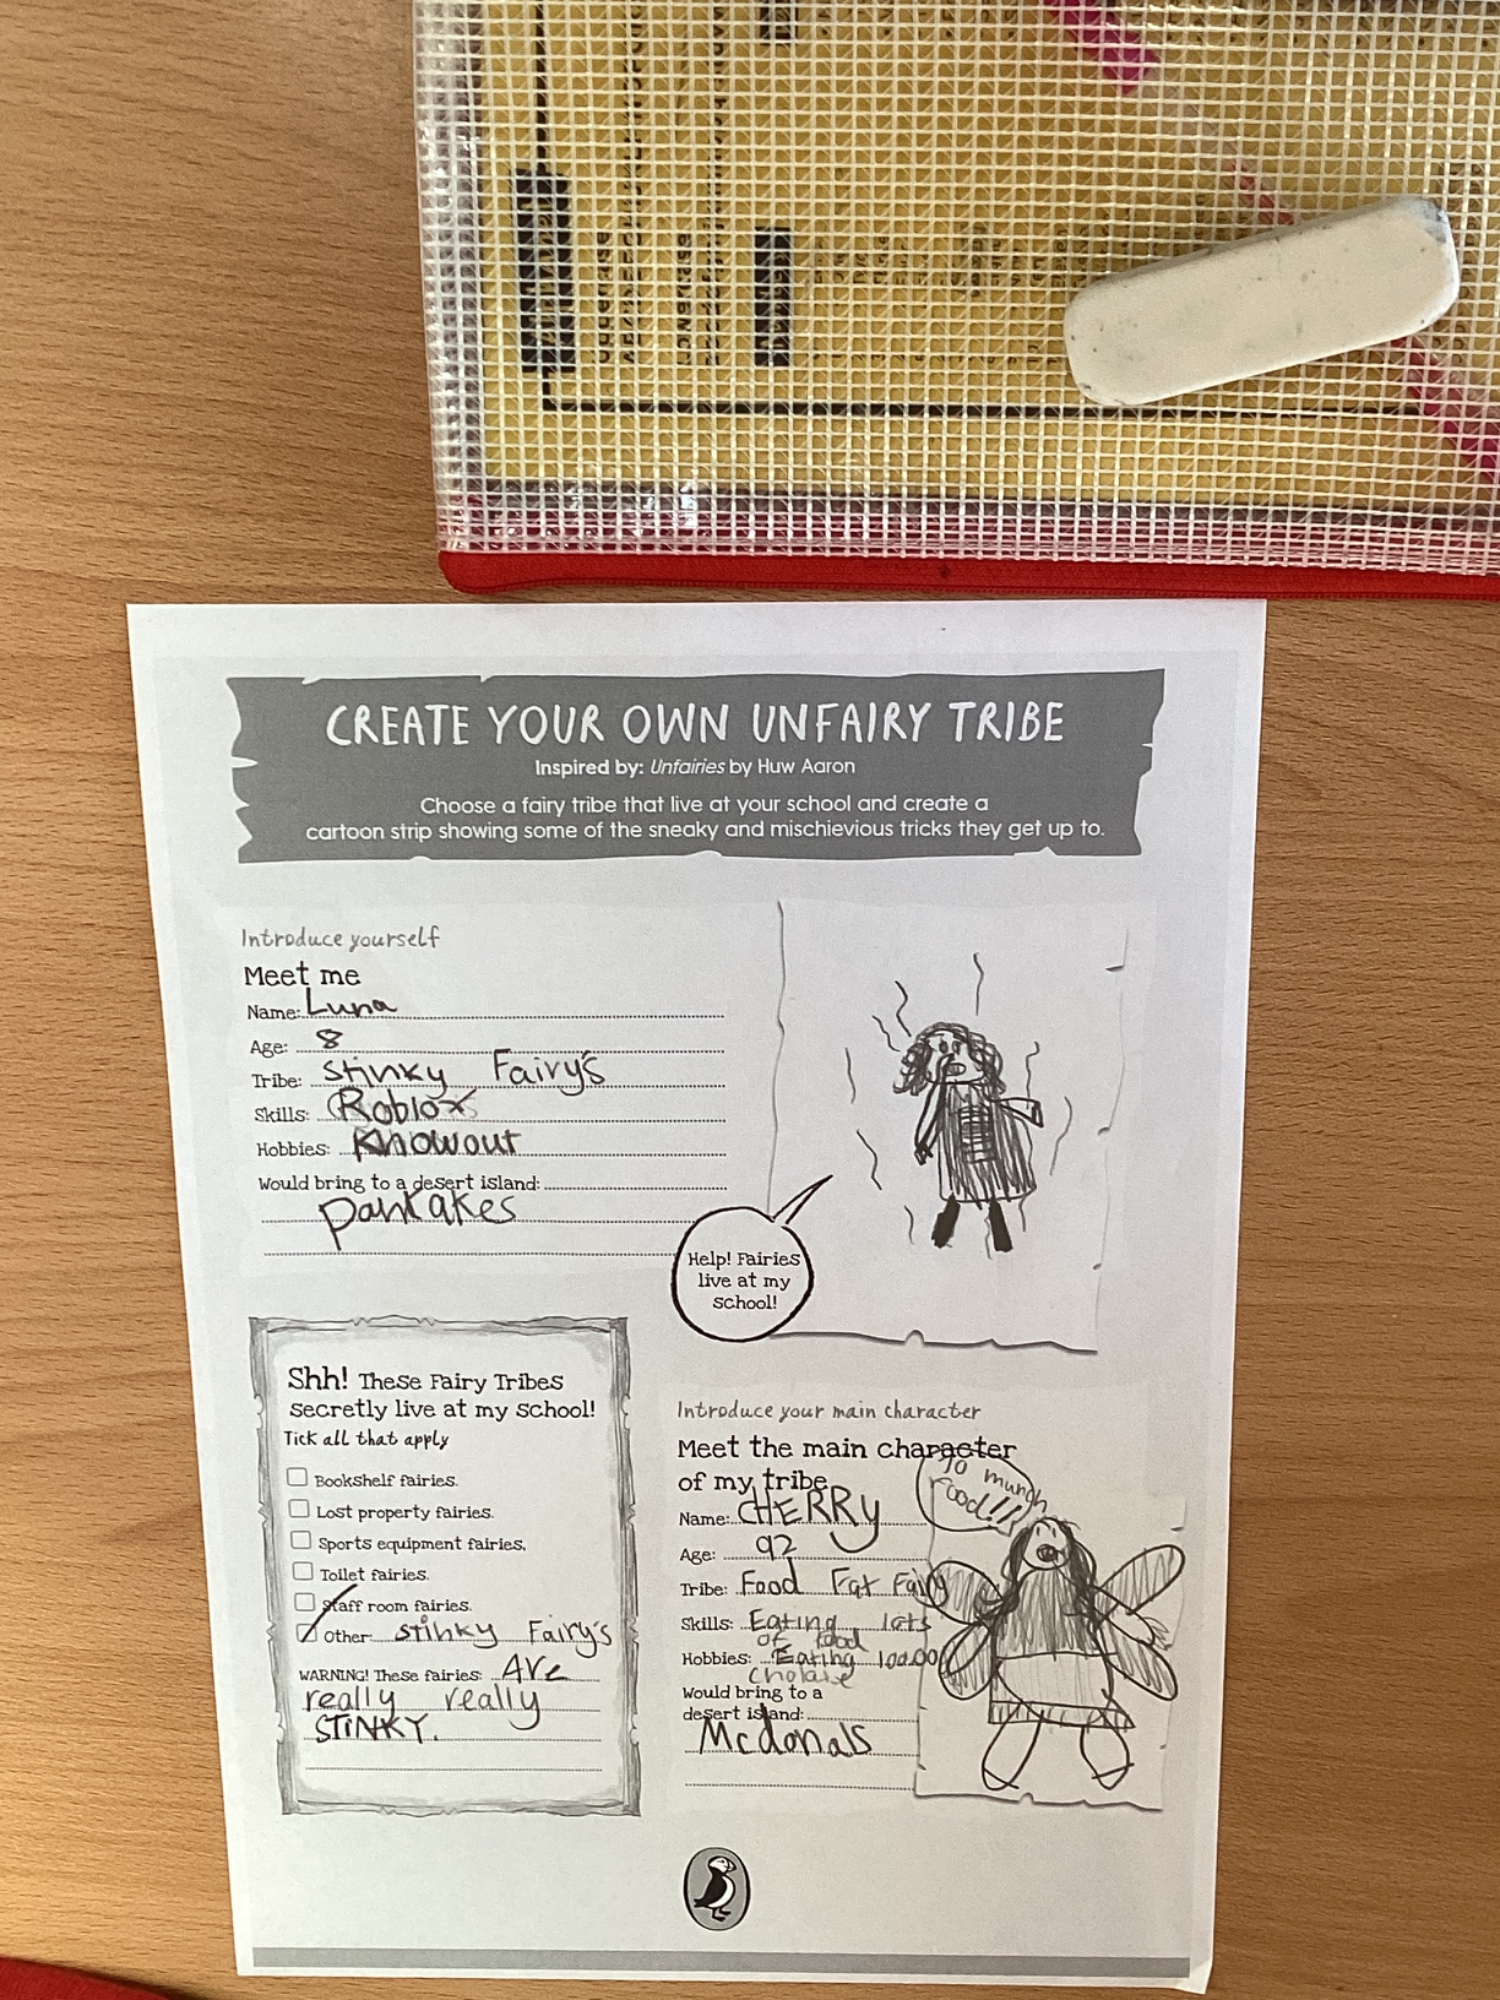 CREATE YOUR OWN UNFAIRY TRIBE
Inspired by: Unfairies by Huw Aaron
Choose a fairy tribe that live at your school and create a
cartoon strip showing some of the sneaky and mischievious tricks they get up to.
Introduce yourself
Meet me
Name: Luna
Age: 8
Tribe: Stinky Fairy's
Skills: Roblox
Hobbies: Knowout
Would bring to a desert island:
Pankakes
Help! Fairies
live at my
school!
Shh! These Fairy Tribes
secretly live at my school!
Tick all that apply
Bookshelf fairies.
Lost property fairies.
Sports equipment fairies.
Toilet fairies.
Staff room fairies.
Other: stinky Fairy's
WARNING! These fairies: Are
really really
STiNKY.
Introduce your main character
Meet the main character
of my tribe
Name: CHERRy
Age: 92
Tribe: Food Fat Fairy
Skills: Eating lots
of food
Hobbies: Eating 100.00
cholate
Would bring to a
desert island:
Mcdonals
To munch
Food!!!